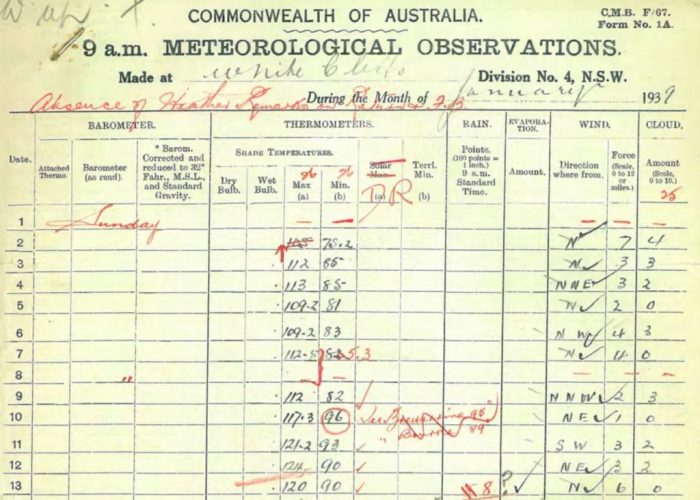 COMMONWEALTH OF AUSTRALIA.
C.M.B. F/67.
Form No. 1A.
9 a.m. METEOROLOGICAL OBSERVATIONS.
Made at White Cliffs Division No. 4, N.S.W.
Absence of Weather Remarks
During the Month of January 1939
BAROMETER. THERMOMETERS. RAIN. EVAPORATION. WIND. CLOUD.
Date. Attached Thermo. Barometer (as read). * Barom. Corrected and reduced to 32° Fahr., M.S.L., and Standard Gravity.
SHADE TEMPERATURES.
Dry Bulb. Wet Bulb. Max (a) Min. (b) Solar Max. (a) Terrl. Min. (b)
DR
Points. (100 points = 1 inch.) 9 a.m. Standard Time. Amount. Direction where from. Force (Scale, 0 to 12 or miles.) Amount (Scale, 0 to 10.)
25
1 Sunday — — — — —
2 105 75.2 N 7 4
3 112 85 N 3 3
4 113 85 NNE 3 2
5 109.2 81 N 2 0
6 109.2 83 N W 4 3
7 112.8 5.3 N 4 0
8 " — — — —
9 112 82 NNW 2 3
10 117.3 96 See Brewarrina 95 NE 1 0
" Bourke 89
11 121.2 93 SW 3 2
12 124 90 NE 3 2
13 120 90 8 ? N 6 0